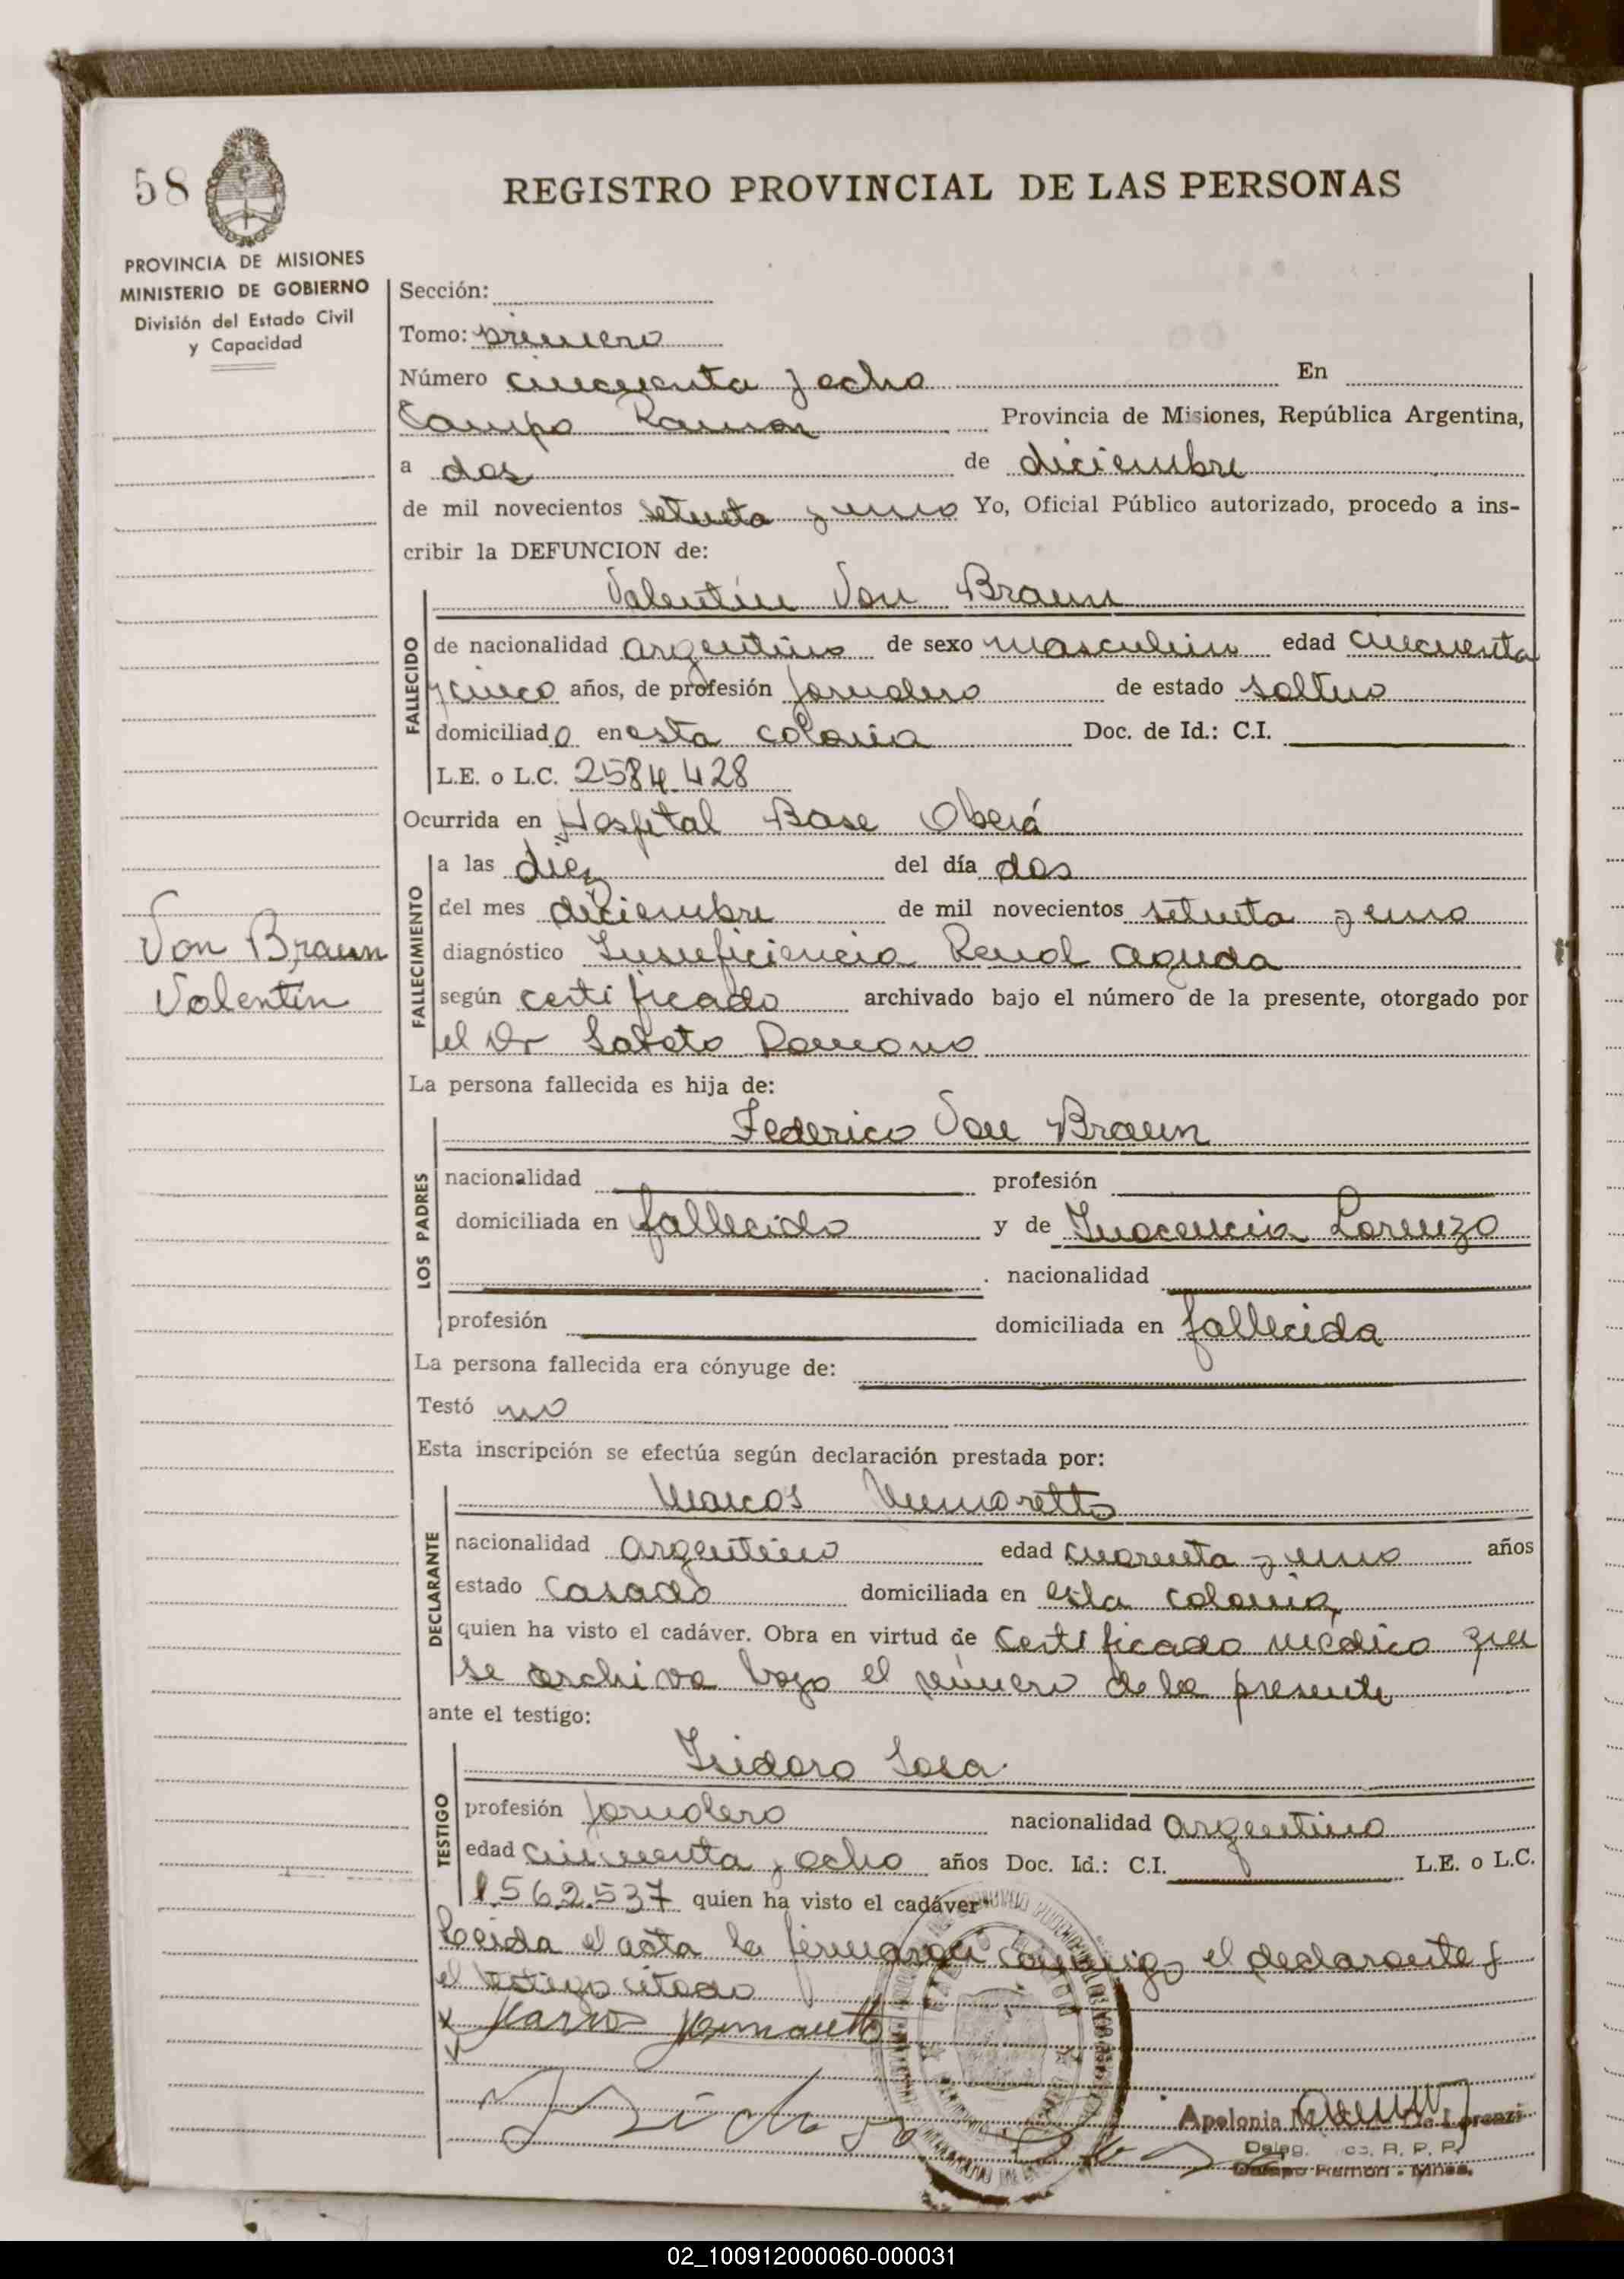 58
REGISTRO PROVINCIAL DE LAS PERSONAS
PROVINCIA DE MISIONES
MINISTERIO DE GOBIERNO
División del Estado Civil
y Capacidad
Sección:
Tomo: primero
Número cincuenta y ocho En
Campo Ramon Provincia de Misiones, República Argentina,
a dos de diciembre
de mil novecientos setenta y uno Yo, Oficial Público autorizado, procedo a ins-
cribir la DEFUNCION de:
Valentin Von Braun
FALLECIDO
de nacionalidad argentino de sexo masculino edad cincuenta
y cinco años, de profesión jornalero de estado soltero
domiciliado en esta colonia Doc. de Id.: C.I.
L.E. o L.C. 2584.428
Ocurrida en Hospital Base Oberá
FALLECIMIENTO
a las diez del día dos
del mes diciembre de mil novecientos setenta y uno
Von Braun
Valentín
diagnóstico Insuficiencia Renal aguda
según certificado archivado bajo el número de la presente, otorgado por
el Dr
La persona fallecida es hija de:
LOS PADRES
Federico Von Braun
nacionalidad profesión
domiciliada en fallecido y de Inocencia Lorenzo
nacionalidad
profesión domiciliada en fallecida
La persona fallecida era cónyuge de:
Testó no
Esta inscripción se efectúa según declaración prestada por:
DECLARANTE
Marcos
nacionalidad argentino edad cuarenta y uno años
estado casado domiciliada en esta colonia
quien ha visto el cadáver. Obra en virtud de certificado médico que
se archiva bajo el número de la presente
ante el testigo:
TESTIGO
Isidoro Sosa
profesión jornalero nacionalidad argentino
edad cincuenta y ocho años Doc. Id.: C.I. L.E. o L.C.
1.562.537 quien ha visto el cadáver
Leida el acta la firmaran conmigo el declarante y
el testigo citado
Apolonia De Lorenzi
Deleg. R. P. P.
Campo Ramon - Mnes.
02_100912000060-000031